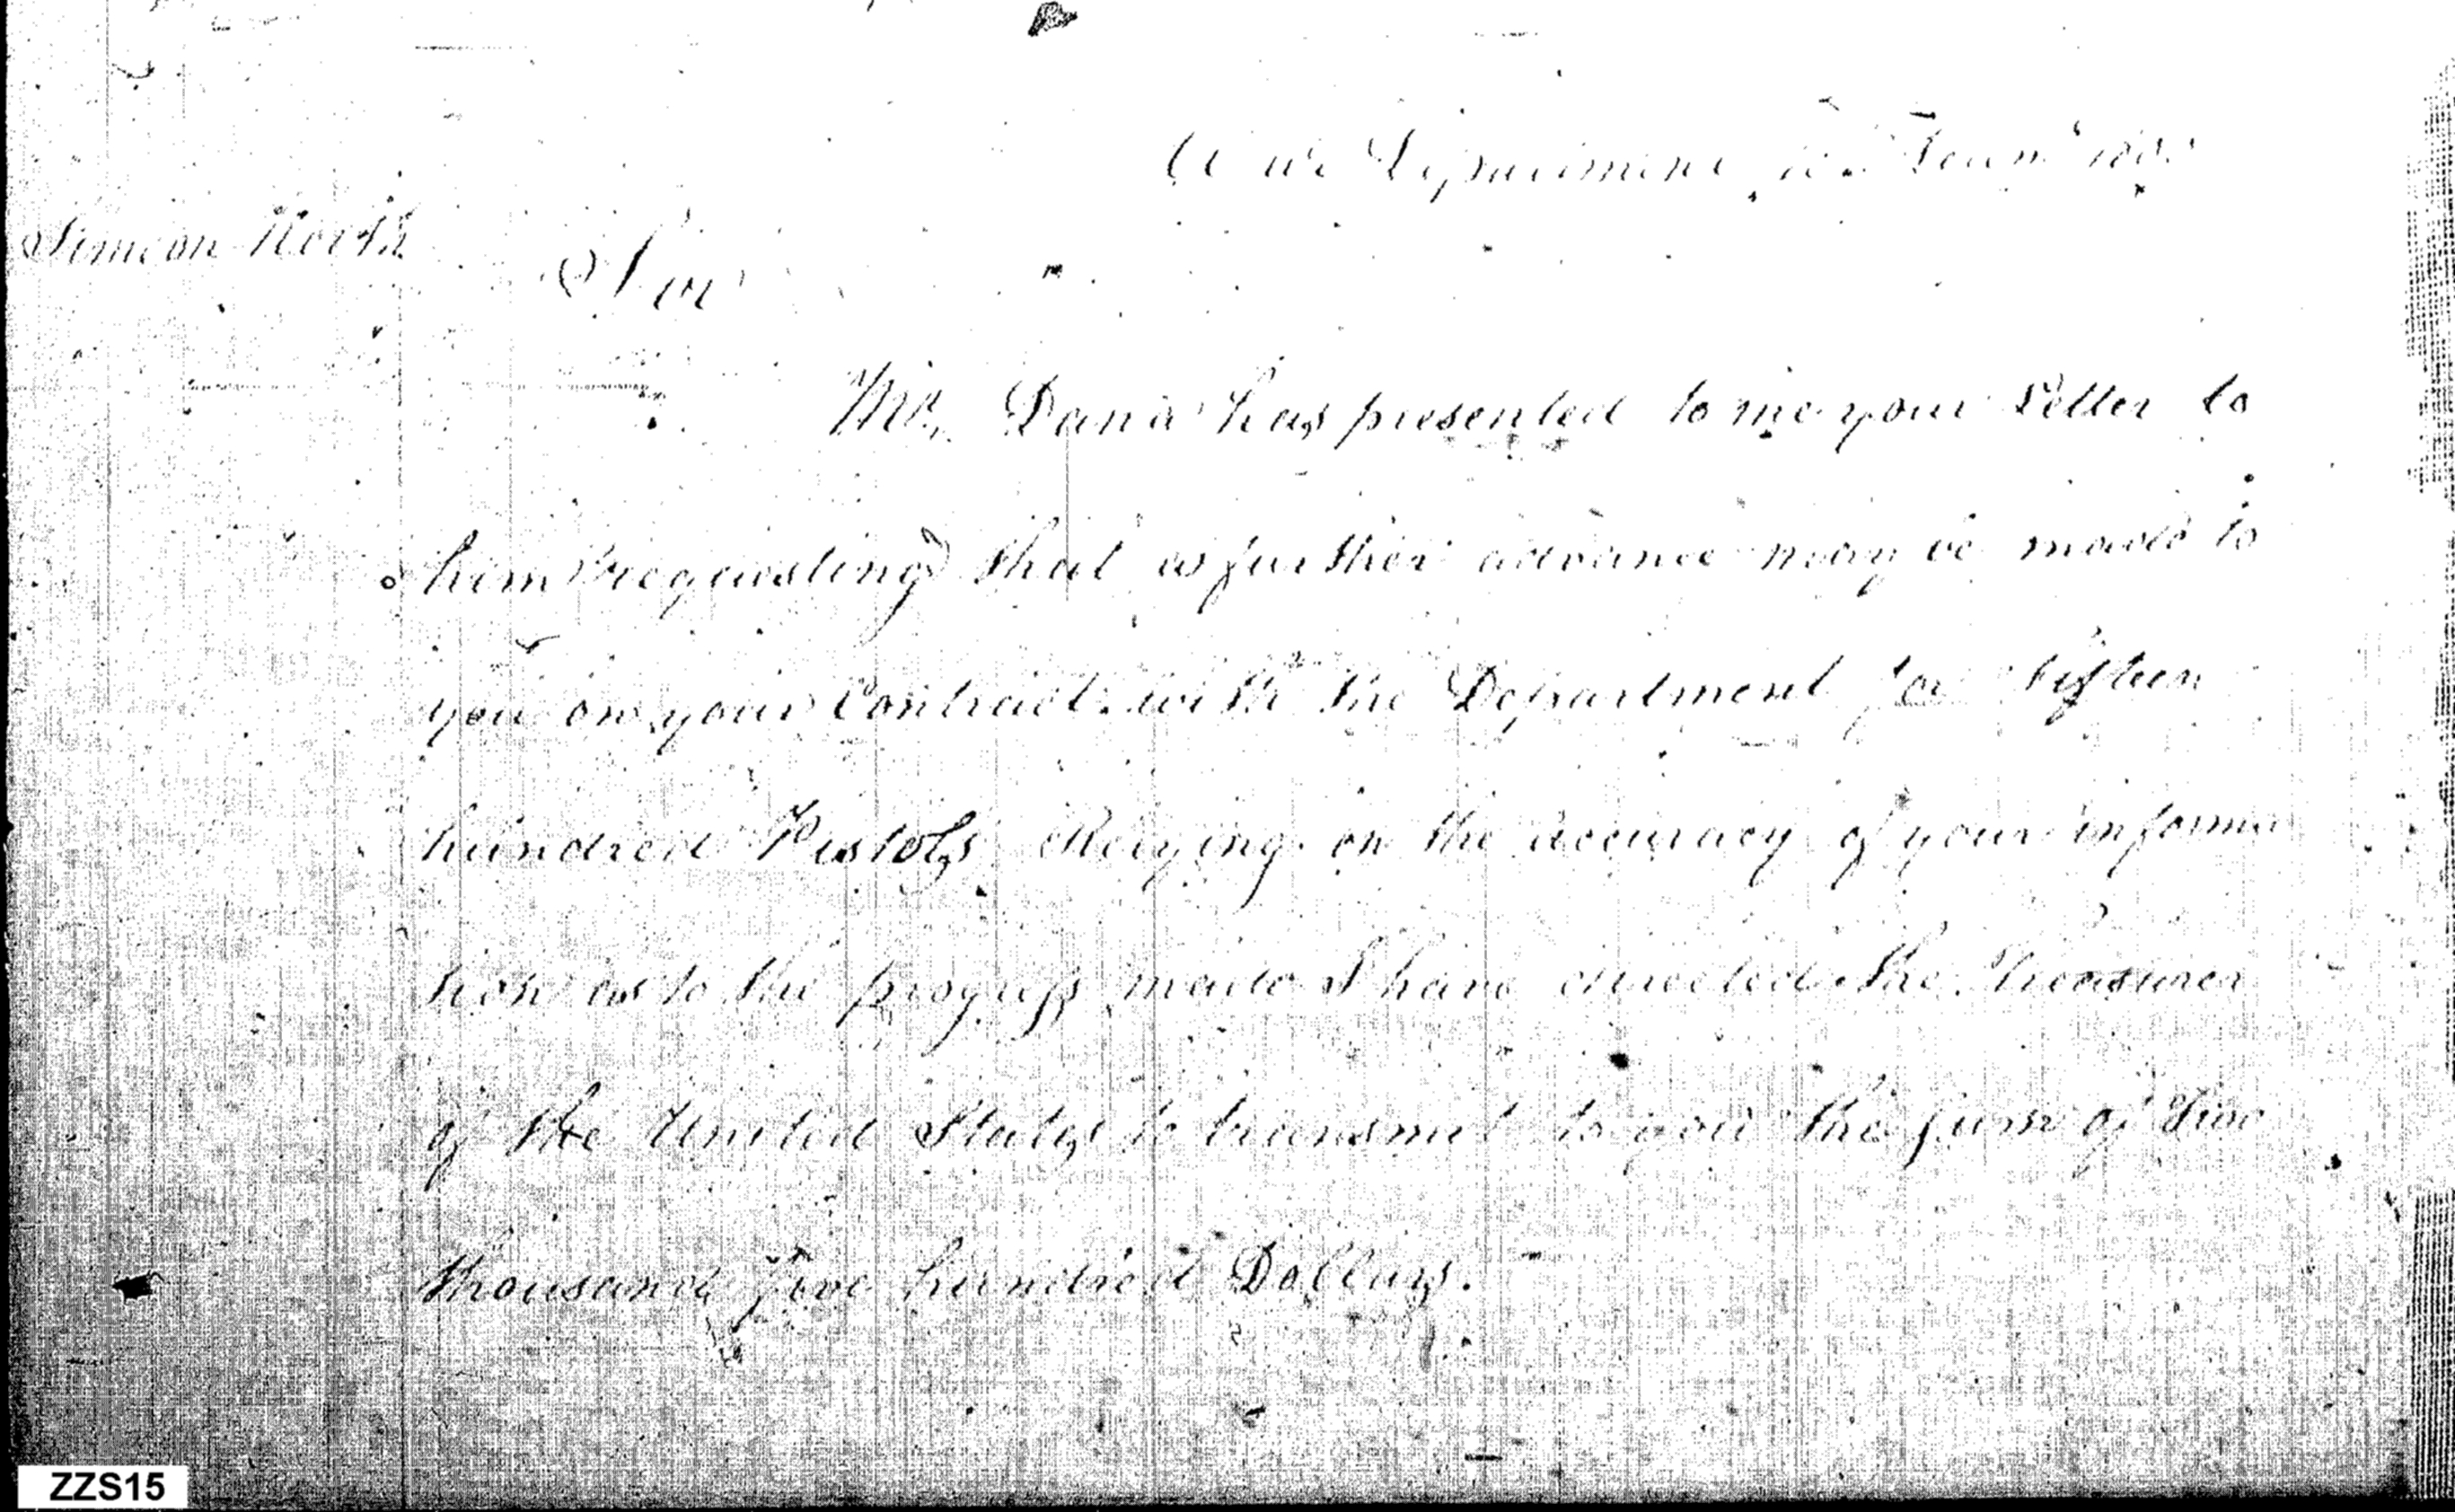 War Department
Simeon North
Sir
Mr. Dana has presented to me your Letter to
him requesting that a further advance may be made to
you on your Contract with the Department for fifteen
hundred Pistols. Relying on the accuracy of your informa
tion as to the progress made I have directed the Treasurer
of the United States to transmit to you the sum of
thousand five hundred Dollars.
ZZS15